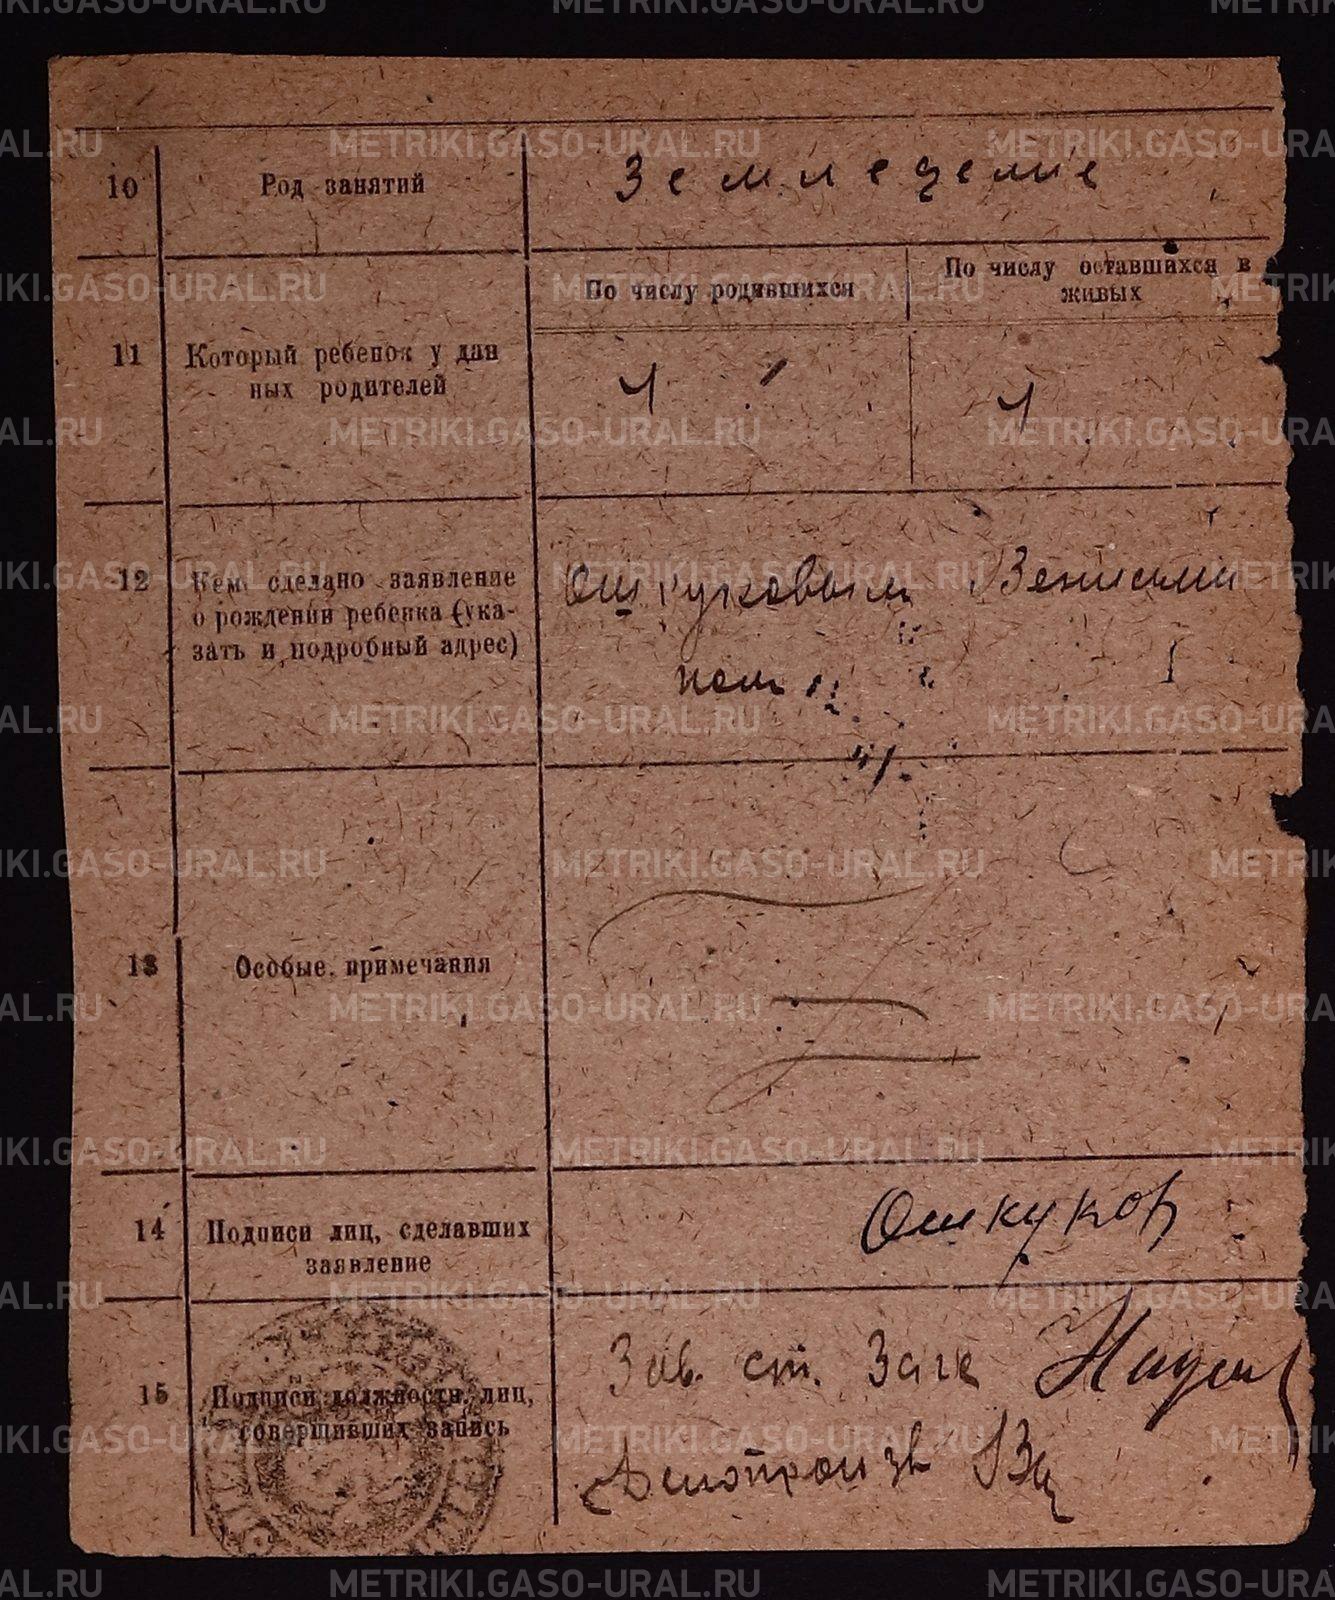 10 Род занятий Земледелие
По числу родившихся
По числу оставшихся в
живых
11 Который ребенок у дан
ных родителей
1 1
12 Кем сделано заявление
о рождении ребенка (ука-
зать и подробный адрес)
Ошкуковым
13 Особые примечания
14 Подписи лиц, сделавших
заявление
Ошкуков
15 Подписи должностн. лиц,
совершивших запись
Зав. ст. Загс
Делопроизв
METRIKI.GASO-URAL.RU